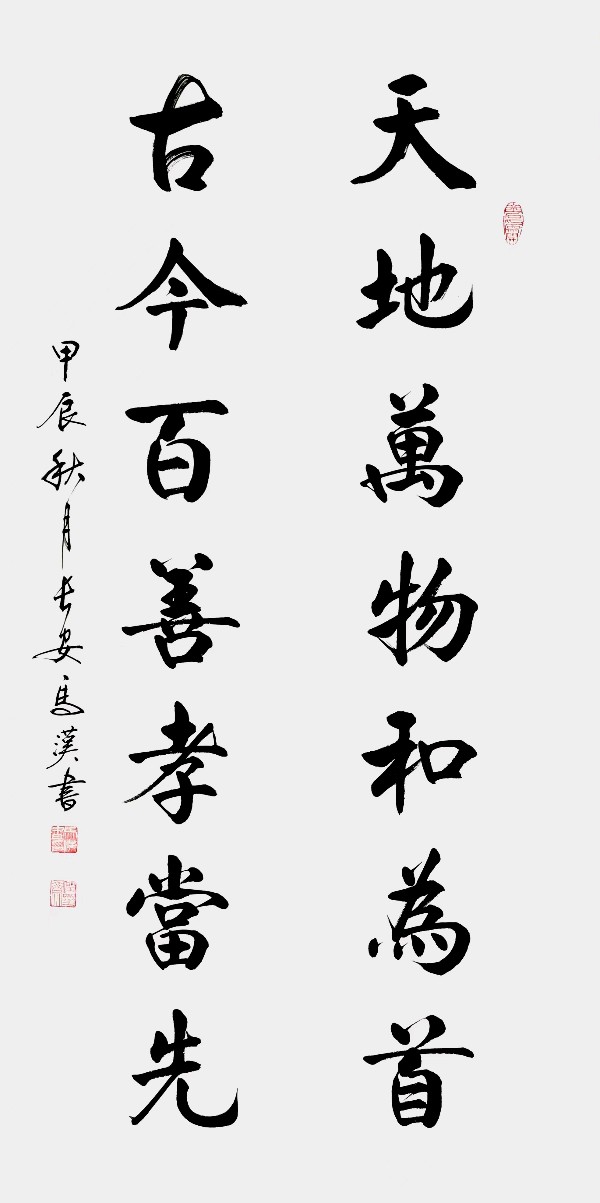 天地萬物和為首
古今百善孝當先
甲辰秋月長安馬漢書